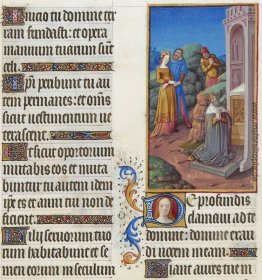 Inicio tu domine ter
ram fundasti: et opera
manuum tuarum sunt
celi.
Ipi peribunt tu au
tem permanes: et omes
sicut vestimentum ve
terascent.
Et sicut opertorium
mutabis eos et muta
buntur tu autem idem
ipe es et anni tui non de
ficient.
Filii servorum tuo
rum habitabunt et se
men eorum in seculum
De profundis
clamavi ad te
domine: domine exau
di vocem meam.
Fiant aures tue in